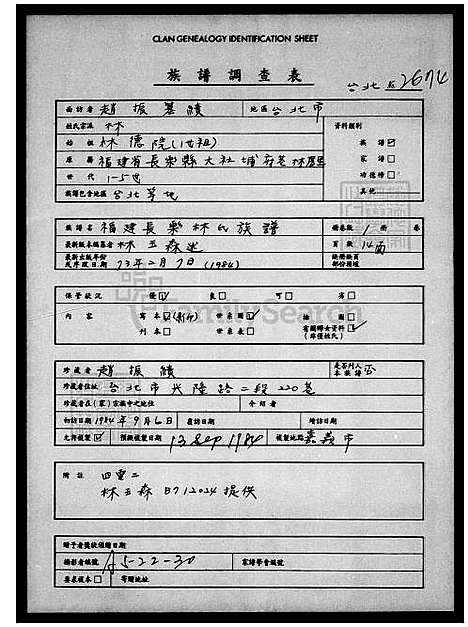 CLAN GENEALOGY IDENTIFICATION SHEET
族譜調查表
台北 2674
面訪者 趙振績 地區 台北市
姓氏宗派 林 資料類別
始祖 林德院(1世祖) 族譜☑
原籍 福建省長樂縣大社埔 家譜□
世代 1-5世 功德榜□
族譜包含地區 台北等地 其他
族譜名 福建長樂林氏族譜 冊卷數 1 冊 卷
最新版本編纂者 林五森 頁數 14面
最新出版年份或序跋日期 73年2月7日(1984) 缺冊缺頁部份種蹟
保管狀況 優☑ 良□ 可□ 劣□
內容 寫本☑(影印) 世系圖☑ 繪圖□
刊本□ 世系表□ 有關婦女資料☑(非僅姓氏)
珍藏者 趙振績 是否列入本族譜 否
珍藏者住址 台北市興隆路二段220巷
珍藏者在(家)宗族中之地位 介紹者
初訪日期 1984年9月6日 複訪日期 續訪日期
允許複製☑ 預擬複製日期 13 Sep 1984 複製地點 嘉義市
附註 四重二
林五森 B712024 提供
贈予者獲校領贈日期
攝影者編號 A5-22-30 家譜學會編號
要求複本□ 寄贈地址
FamilySearch